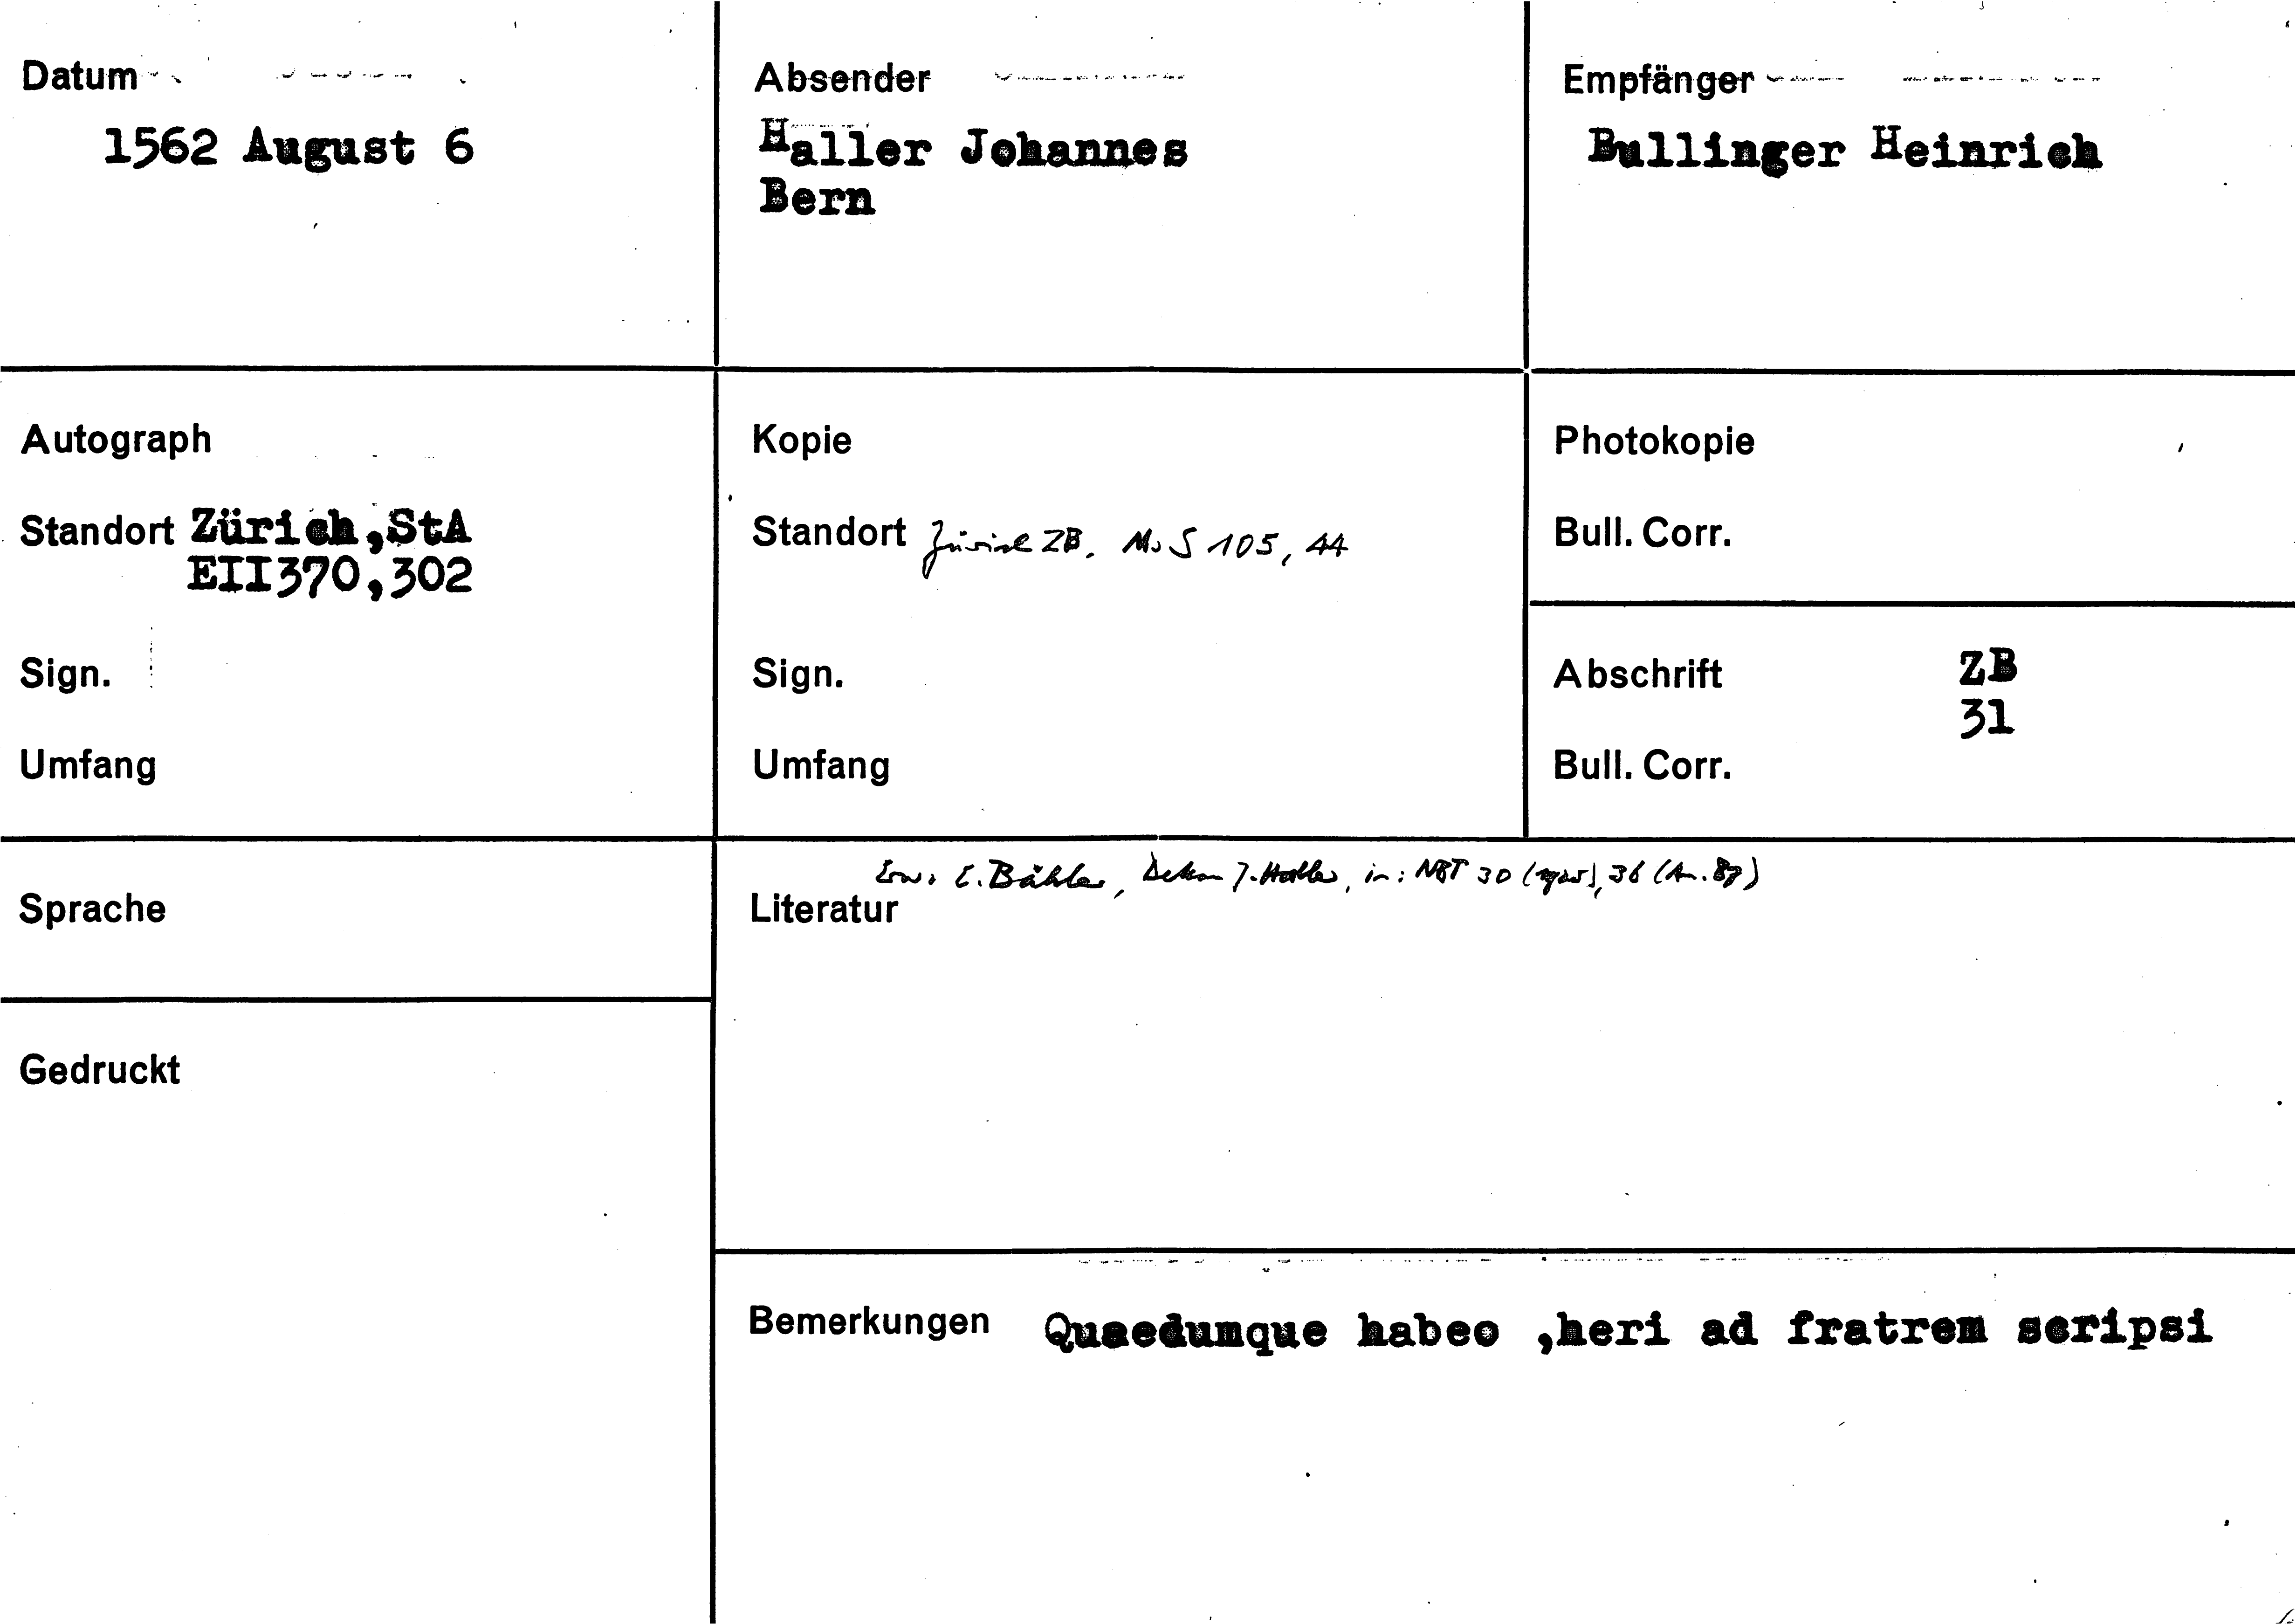 Datum
1562 August 6
Absender
Haller Johannes
Bern
Empfänger
Bullinger Heinrich
Autograph
Standort Zürich,StA
EII370,302
Sign.
Umfang
Kopie
Standort Zürich ZB, Ms S 105, 44
Sign.
Umfang
Photokopie
Bull. Corr.
Abschrift ZB
31
Bull. Corr.
Sprache
Gedruckt
Erw. E. Bähler, Dekan J. Haller, in: NBT 30 36
Literatur
Bemerkungen Quaedumque habeo ,heri ad fratrem scripsi